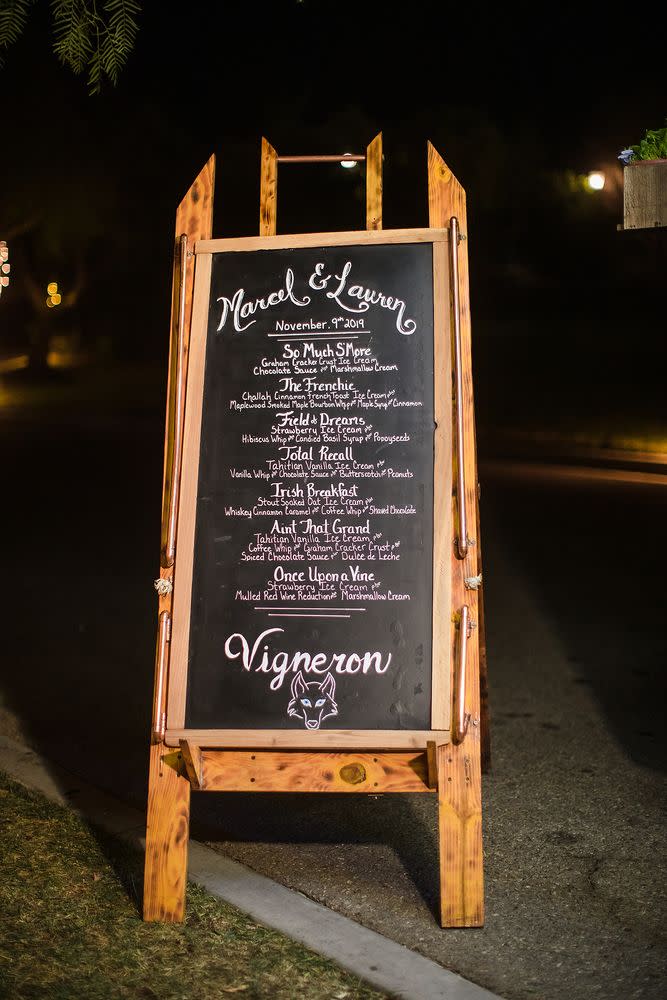 Marcel & Lauren
November. 9th 2019
So Much S'More
Graham Cracker Crust Ice Cream
Chocolate Sauce and Marshmallow Cream
The Frenchie
Challah Cinnamon French Toast Ice Cream and
Maplewood Smoked Maple Bourbon Whip and Maple Syrup and Cinnamon
Field of Dreams
Strawberry Ice Cream and
Hibiscus Whip and Candied Basil Syrup and Poppyseeds
Total Recall
Tahitian Vanilla Ice Cream and
Vanilla Whip and Chocolate Sauce and Butterscotch and Peanuts
Irish Breakfast
Stout Soaked Oat Ice Cream and
Whiskey Cinnamon Caramel and Coffee Whip and Shaved Chocolate
Aint That Grand
Tahitian Vanilla Ice Cream and
Coffee Whip and Graham Cracker Crust and
Spiced Chocolate Sauce and Dulce de Leche
Once Upon a Vine
Strawberry Ice Cream and
Mulled Red Wine Reduction and Marshmallow Cream
Vigneron